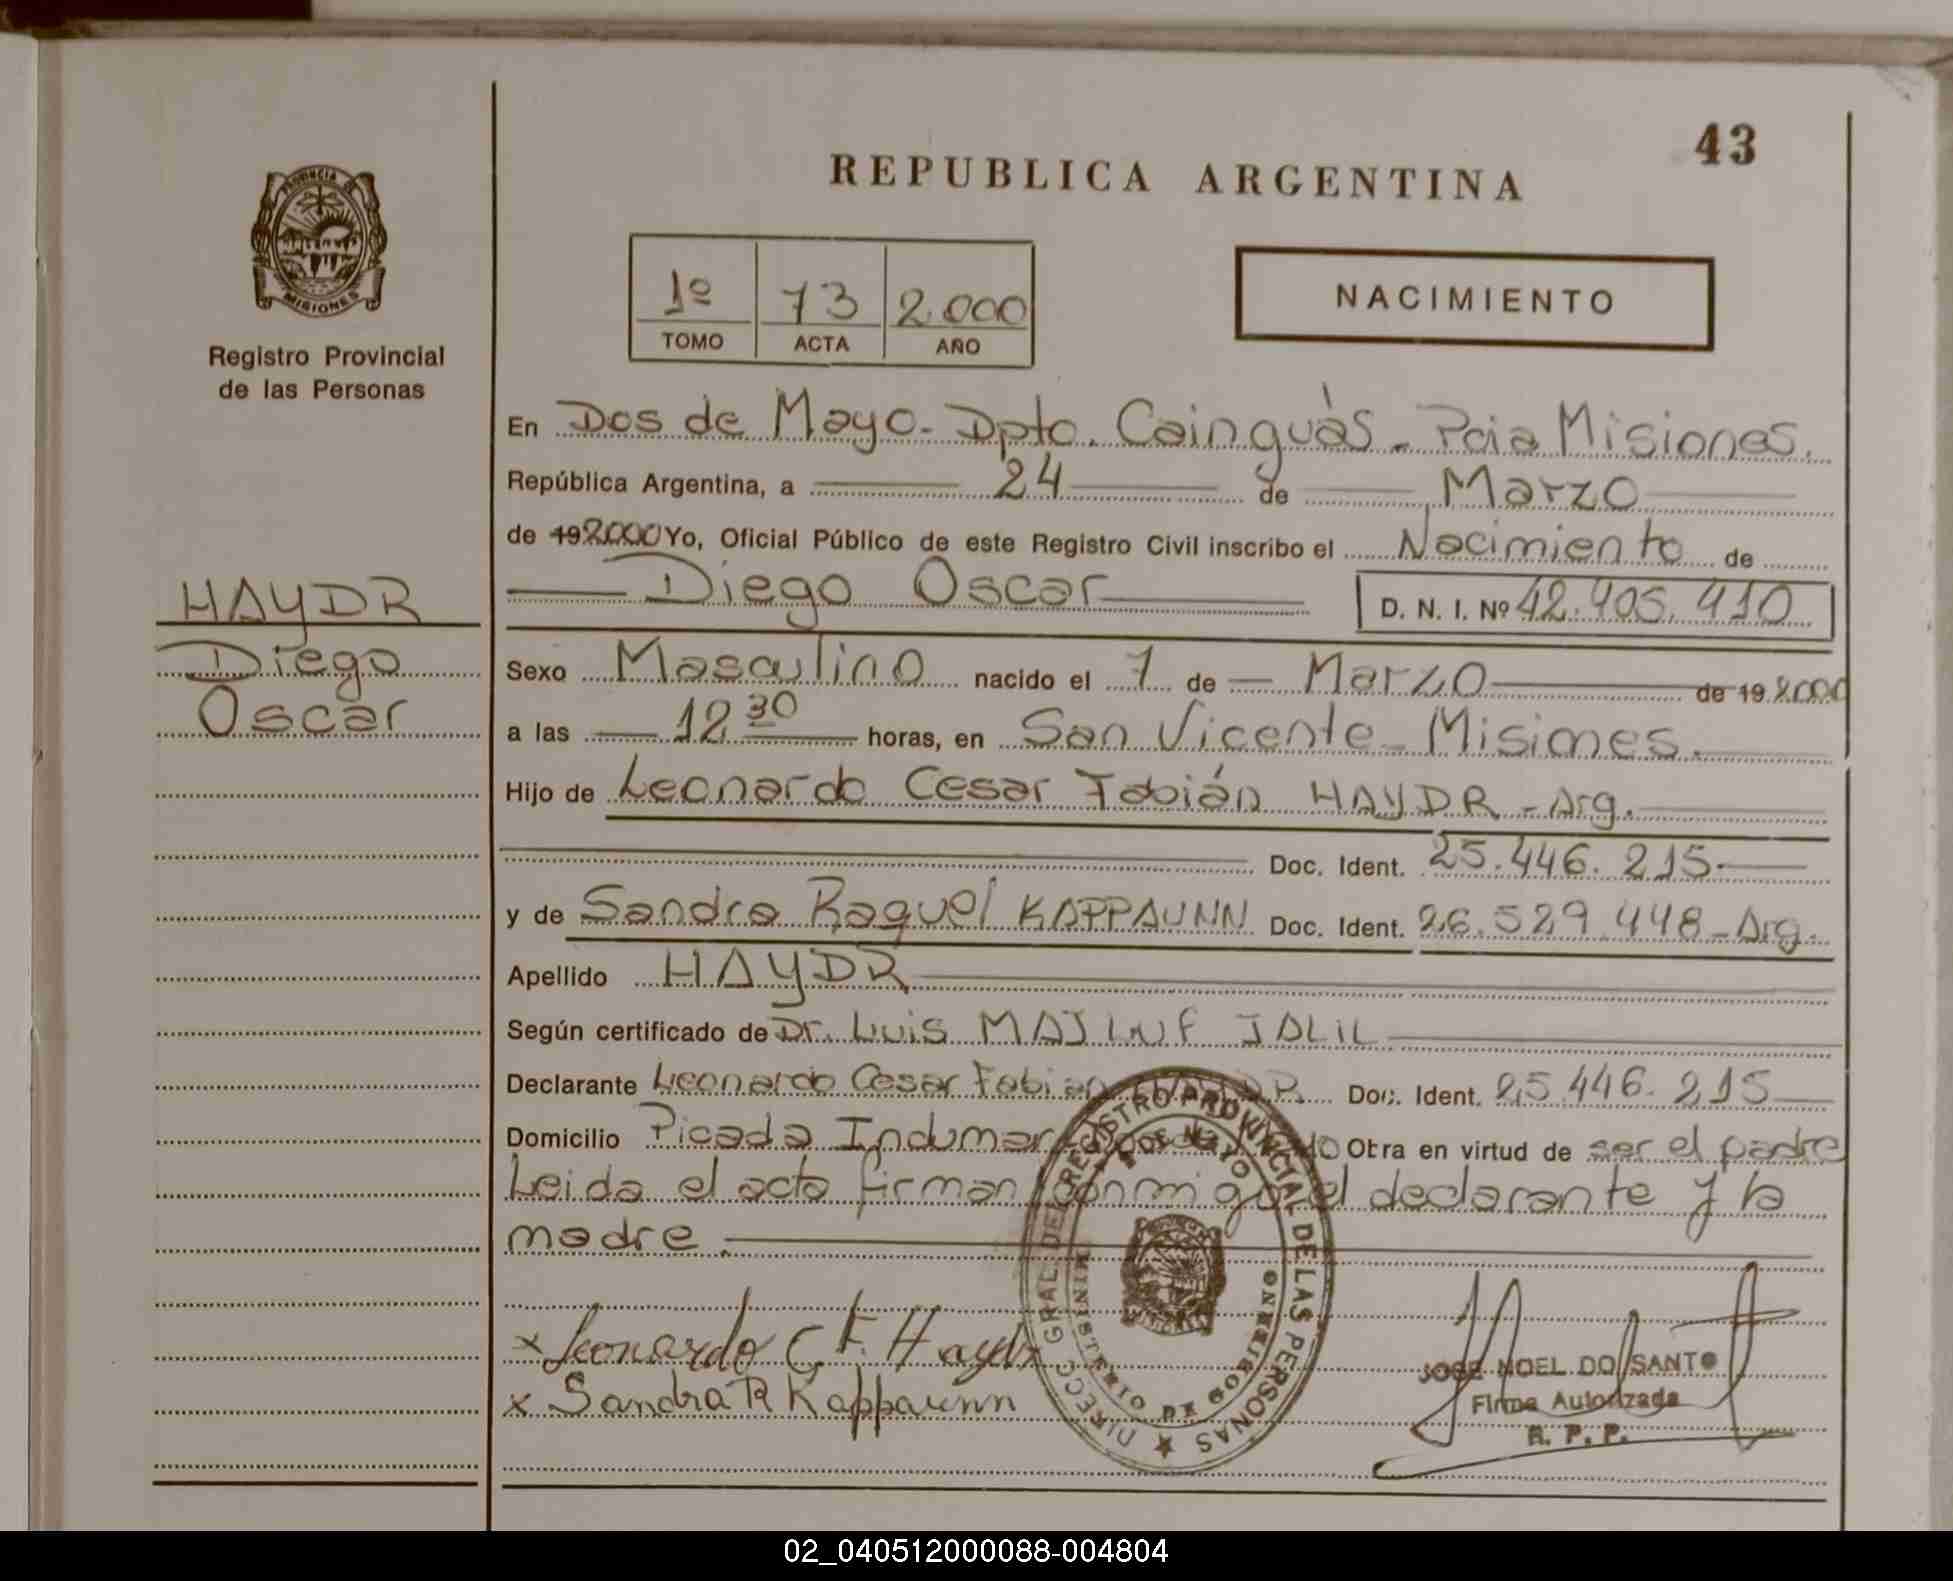 43
REPUBLICA ARGENTINA
PROVINCIA DE
MISIONES
Registro Provincial
de las Personas
1º 73 2.000
TOMO ACTA AÑO
NACIMIENTO
En Dos de Mayo- Dpto. Cainguàs- Pcia Misiones.
República Argentina, a 24 de Marzo
de 192000 Yo, Oficial Público de este Registro Civil inscribo el Nacimiento de
Diego Oscar D. N. I. Nº 42.405.410
HAYDR
Diego
Oscar
Sexo Masculino nacido el 7 de Marzo de 19 2000
a las 12 30 horas, en San Vicente- Misiones.
Hijo de Leonardo Cesar Fabián HAYDR - Arg.
Doc. Ident. 25.446.215
y de Sandra Raquel KAPPAUNN Doc. Ident. 26.529.448-Arg.
Apellido HAYDR
Según certificado de Dr. Luis MAJLUF JALIL
Declarante Leonardo Cesar Fabian HAYDR. Doc. Ident. 25.446.215
Domicilio Picada Indumar Otra en virtud de ser el padre
Leida el acta firman conmigo el declarante y la
madre.
x Leonardo C. F. Haydr
x Sandra R Kappaunn
DIRECC. GRAL. DEL REGISTRO PROVINCIAL DE LAS PERSONAS
MINISTERIO DE GOBIERNO
DOS DE MAYO
JOSE NOEL DO SANTO
Firma Autorizada
R. P. P.
02_040512000088-004804